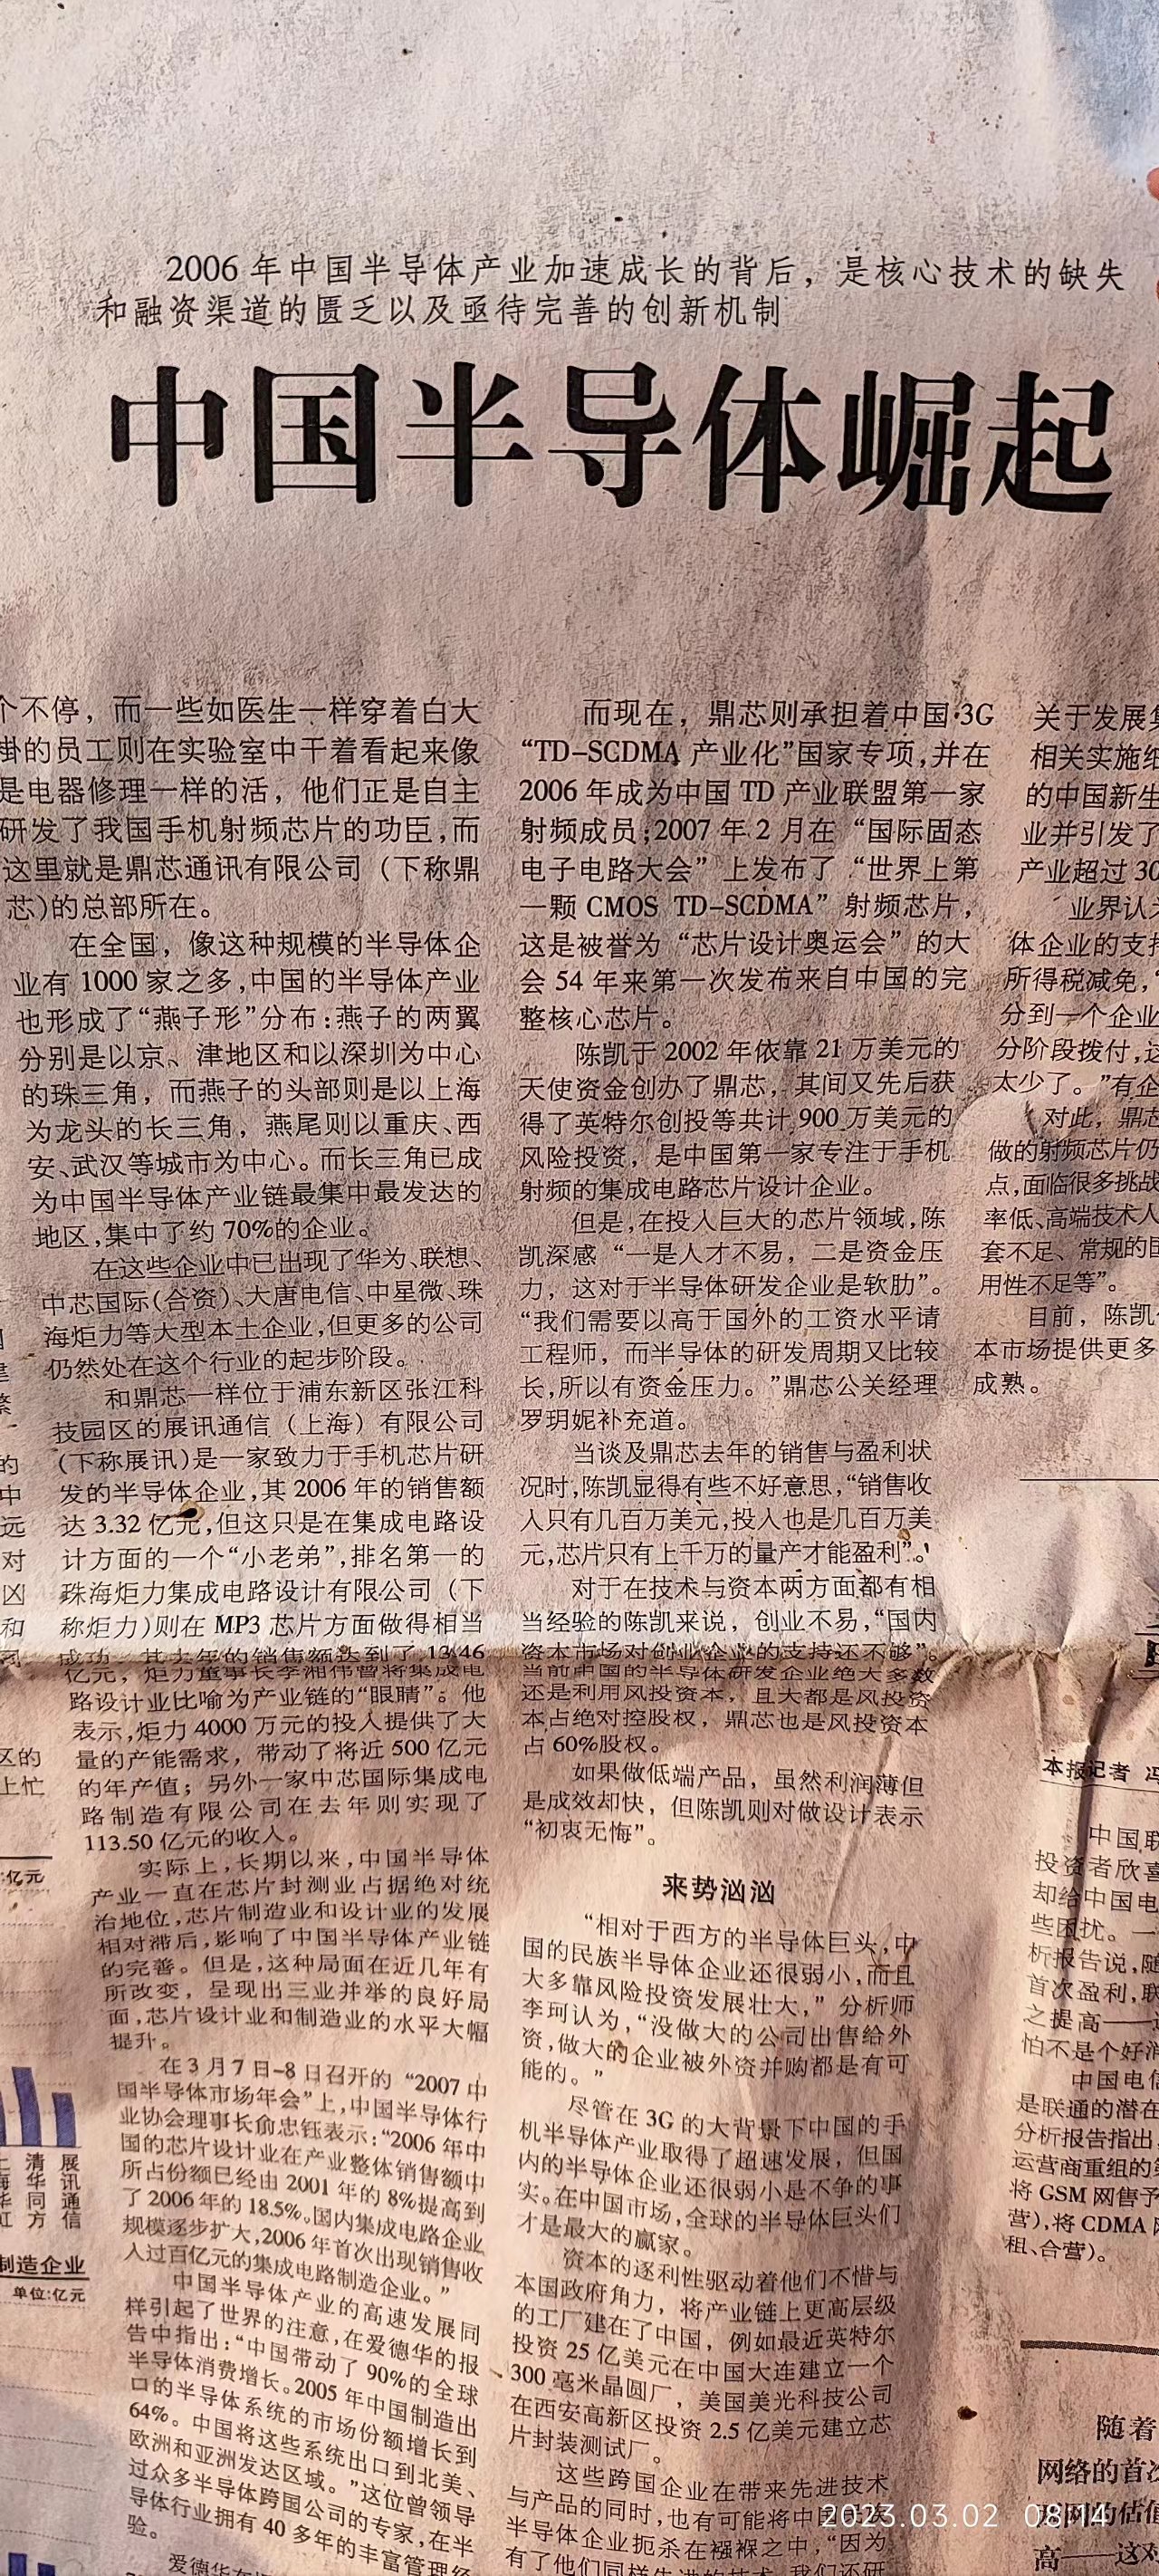 2006 年中国半导体产业加速成长的背后，是核心技术的缺失
和融资渠道的匮乏以及亟待完善的创新机制
中国半导体崛起
个不停，而一些如医生一样穿着白大
褂的员工则在实验室中干着看起来像
是电器修理一样的活，他们正是自主
研发了我国手机射频芯片的功臣，而
这里就是鼎芯通讯有限公司（下称鼎
芯)的总部所在。
在全国，像这种规模的半导体企
业有 1000 家之多，中国的半导体产业
也形成了“燕子形”分布：燕子的两翼
分别是以京、津地区和以深圳为中心
的珠三角，而燕子的头部则是以上海
为龙头的长三角，燕尾则以重庆、西
安、武汉等城市为中心。而长三角已成
为中国半导体产业链最集中最发达的
地区，集中了约 70%的企业。
在这些企业中已出现了华为、联想、
中芯国际(合资)、大唐电信、中星微、珠
海炬力等大型本土企业，但更多的公司
仍然处在这个行业的起步阶段。
和鼎芯一样位于浦东新区张江科
技园区的展讯通信（上海）有限公司
(下称展讯)是一家致力于手机芯片研
发的半导体企业，其 2006 年的销售额
达 3.32 亿元，但这只是在集成电路设
计方面的一个“小老弟”，排名第一的
珠海炬力集成电路设计有限公司（下
称炬力)则在 MP3 芯片方面做得相当
成功，其去年的销售额达到了 13.46
亿元，炬力董事长李湘伟曾将集成电
路设计业比喻为产业链的“眼睛”。他
表示，炬力 4000 万元的投入提供了大
量的产能需求，带动了将近 500 亿元
的年产值；另外一家中芯国际集成电
路制造有限公司在去年则实现了
113.50 亿元的收入。
实际上，长期以来，中国半导体
产业一直在芯片封测业占据绝对统
治地位，芯片制造业和设计业的发展
相对滞后，影响了中国半导体产业链
的完善。但是，这种局面在近几年有
所改变，呈现出三业并举的良好局
面，芯片设计业和制造业的水平大幅
提升。
在 3 月 7 日–8 日召开的“2007 中
国半导体市场年会”上，中国半导体行
业协会理事长俞忠钰表示：“2006 年中
国的芯片设计业在产业整体销售额中
所占份额已经由 2001 年的 8%提高到
了 2006 年的 18.5%。国内集成电路企业
规模逐步扩大，2006 年首次出现销售收
入过百亿元的集成电路制造企业。”
中国半导体产业的高速发展同
样引起了世界的注意，在爱德华的报
告中指出：“中国带动了 90%的全球
半导体消费增长。2005 年中国制造出
口的半导体系统的市场份额增长到
64%。中国将这些系统出口到北美、
欧洲和亚洲发达区域。”这位曾领导
过众多半导体跨国公司的专家，在半
导体行业拥有 40 多年的丰富管理经
验。
而现在，鼎芯则承担着中国 3G
“TD–SCDMA 产业化”国家专项，并在
2006 年成为中国 TD 产业联盟第一家
射频成员；2007 年 2 月在“国际固态
电子电路大会”上发布了“世界上第
一颗 CMOS TD–SCDMA”射频芯片，
这是被誉为“芯片设计奥运会”的大
会 54 年来第一次发布来自中国的完
整核心芯片。
陈凯于 2002 年依靠 21 万美元的
天使资金创办了鼎芯，其间又先后获
得了英特尔创投等共计 900 万美元的
风险投资，是中国第一家专注于手机
射频的集成电路芯片设计企业。
但是，在投入巨大的芯片领域，陈
凯深感“一是人才不易，二是资金压
力，这对于半导体研发企业是软肋”。
“我们需要以高于国外的工资水平请
工程师，而半导体的研发周期又比较
长，所以有资金压力。”鼎芯公关经理
罗玥妮补充道。
当谈及鼎芯去年的销售与盈利状
况时，陈凯显得有些不好意思，“销售收
入只有几百万美元，投入也是几百万美
元，芯片只有上千万的量产才能盈利”。
对于在技术与资本两方面都有相
当经验的陈凯来说，创业不易，“国内
资本市场对创业企业的支持还不够”。
当前中国的半导体研发企业绝大多数
还是利用风投资本，且大都是风投资
本占绝对控股权，鼎芯也是风投资本
占 60%股权。
如果做低端产品，虽然利润薄但
是成效却快，但陈凯则对做设计表示
“初衷无悔”。
来势汹汹
“相对于西方的半导体巨头，中
国的民族半导体企业还很弱小，而且
大多靠风险投资发展壮大，”分析师
李珂认为，“没做大的公司出售给外
资，做大的企业被外资并购都是有可
能的。”
尽管在 3G 的大背景下中国的手
机半导体产业取得了超速发展，但国
内的半导体企业还很弱小是不争的事
实。在中国市场，全球的半导体巨头们
才是最大的赢家。
资本的逐利性驱动着他们不惜与
本国政府角力，将产业链上更高层级
的工厂建在了中国，例如最近英特尔
投资 25 亿美元在中国大连建立一个
300 毫米晶圆厂，美国美光科技公司
在西安高新区投资 2.5 亿美元建立芯
片封装测试厂。
这些跨国企业在带来先进技术
与产品的同时，也有可能将中国民族
半导体企业扼杀在襁褓之中，“因为
关于发展集
相关实施细
的中国新生
业并引发了
产业超过 30
业界认为
体企业的支持
所得税减免，“
分到一个企业
分阶段拨付，这
太少了。”有企
对此，鼎芯
做的射频芯片仍
点，面临很多挑战
率低、高端技术人
套不足、常规的国
用性不足等”。
目前，陈凯
本市场提供更多
成熟。
本报记者 冯
中国联
投资者欣喜
却给中国电
些困扰。一
析报告说，随
首次盈利，联
之提高——这
怕不是个好消
中国电信
是联通的潜在
分析报告指出，
运营商重组的
将 GSM 网售予
营），将 CDMA 网
租、合营）。
随着
网络的首次
高——这对
区的
上忙
:亿元
清华同方
展讯通信
制造企业
单位:亿元
2023.03.02 08:14